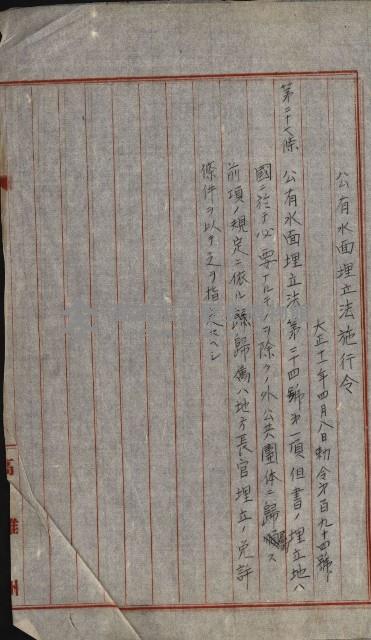 公有水面埋立法施行令
大正十一年四月八日勅令第百九十四號
第二十七條 公有水面埋立法第二十四號第一項但書ノ埋立地ハ
國ニ於テ必要アルモノヲ除クノ外公共團体ニ歸 ス
前項ノ規定ニ依ル 歸屬ハ地方長官埋立ノ免許
條件ヲ以テ之ヲ指定スヘシ
高雄州